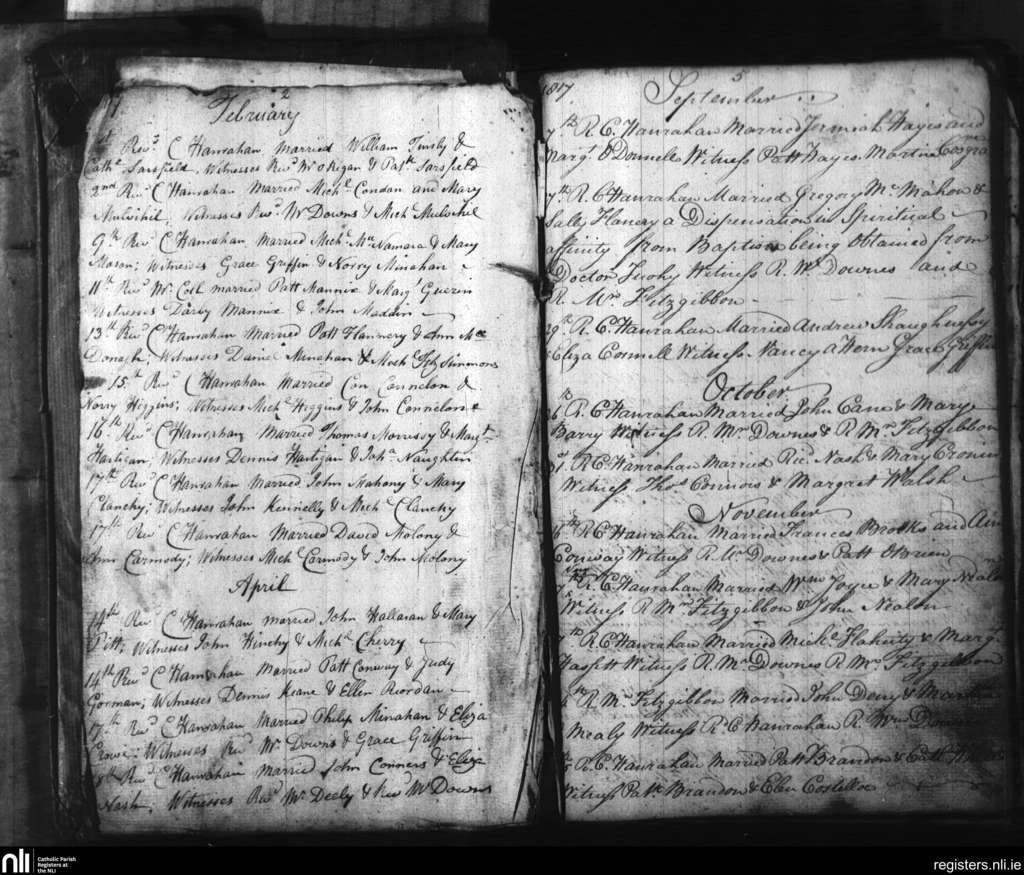 2
February
Revd C Hanrahan married William Tinsly &
Cathe Sarsfield. Witnesses Revd Mr O Regan & Patk Sarsfield
2nd Revd C Hanrahan married Michl Condon and Mary
Mulvihil; Witnesses Revd Mr Downs & Mich Mulvihil
9th Revd C Hanrahan married Michl Mc Namara & Mary
Moran; Witnesses Grace Griffin & Norry Minahan
11th Revd Mr Coll married Patt Mannix & Margt Guerin
Witnesses Darby Mannix & John Madden
13th Revd C Hanrahan Married Patt Flannery & Ann Mc
Donagh; Witnesses Daniel Minahan & Mich Fitzsimmons
15th Revd C Hanrahan married Con Connelon &
Norry Higgins; Witnesses Michl Higgins & John Connelon
16th Revd C Hanrahan married Thomas Morrissy & Margt
Hartigan; Witnesses Dennis Hartigan & Joha Naughtin
17th Revd C Hanrahan Married John Mahony & Mary
Clanchy; Witnesses John Kennelly & Mich Clanchy
17th Revd C Hanrahan Married David Molony &
Ann Carmody; Witnesses Michl Carmody & John Molony
April
14th Revd C Hanrahan married John Hallaran & Mary
Pitt; Witnesses John Hinchy & Michl Cherry
14th Revd C Hanrahan Married Patt Conway & Judy
Gorman; Witnesses Dennis Keane & Ellen Reordan
17th Revd C Hanrahan Married Philip Minahan & Eliza
Crowe; Witnesses Revd Mr Downs & Grace Griffin
18th Revd C Hanrahan Married John Conners & Eliza
Nash, Witnesses Revd Mr Deely & Revd Mr Downs
1817
5
September
7th R. C. Hanrahan Married Jermiah Hayes and
Margt O Donnell Witness Patt Hayes Martin Cosgra
7th R. C Hanrahan Married Gregory Mc Mahon &
Sally Flanery a Dispensation in Spiritical
affinity from Baptism being obtained from
Doctor Tuohy Witness R. Mr Downes and
R. Mr Fitzgibbon
9th R. C. Hanrahan Married Andrew Shaughnessy
Eliza Connell Witness Nancy Ahern Grace Griffin
October
6th R C Hanrahan Married John Cane & Mary
Barry Witness R. Mr Downes & R Mr Fitzgibbon
R. C Hanrahan Married Ricd Nash & Mary Cronin
Witness Thos Connors & Margret Walsh
November
6th R C Hanrahan Married Frances Brooks and Ann
Conway Witness R. Mr Downes & Patt O Brien
R. C Hanrahan Married Wm Joyce & Mary Nealon
Witness R Mr Fitzgibbon & John Nealon
R. C Hanrahan Married Michl Flaherty & Margt
Hassett Witness R. Mr Downes R. Mr Fitzgibbon
R. Mr Fitzgibbon Married John Deny &
Mealy Witness R. C Hanrahan R. Mr
R. C. Hanrahan Married Patt Brandon & Catt
Witness Patk Brandon & Elen Costelloe
nli
Catholic Parish
Registers at
the NLI
registers.nli.ie